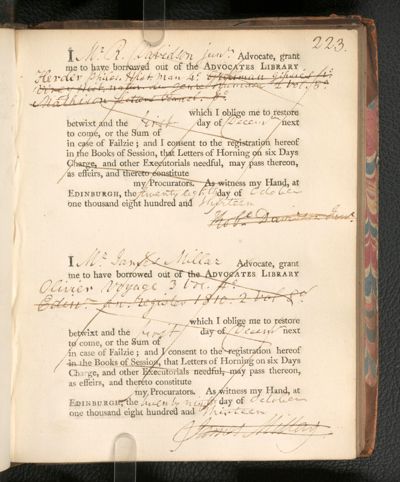 223.
I Mr. R. Davidson junr. Advocate, grant
me to have borrowed out of the ADVOCATES LIBRARY
Herder philos. Hist. man 4o.
which I oblige me to restore
betwixt and the first day of Decemr next
to come, or the Sum of
in case of Failzie; and I consent to the registration hereof
in the Books of Session, that Letters of Horning on six Days
Charge, and other Executorials needful, may pass thereon,
as effeirs, and thereto constitute
my Procurators. As witness my Hand, at
EDINBURGH, the twenty eighth day of October
one thousand eight hundred and thirteen
I Mr. James Millar Advocate, grant
me to have borrowed out of the ADVOCATES LIBRARY
Olivier Voyage 3 vol. 4o.
Edinr. An. Register 1810. 2 vol 8o.
which I oblige me to restore
betwixt and the first day of Decemr next
to come, or the Sum of
in case of Failzie; and I consent to the registration hereof
in the Books of Session, that Letters of Horning on six Days
Charge, and other Executorials needful, may pass thereon,
as effeirs, and thereto constitute
my Procurators. As witness my Hand, at
EDINBURGH, the twenty ninth day of October
one thousand eight hundred and thirteen
James Millar